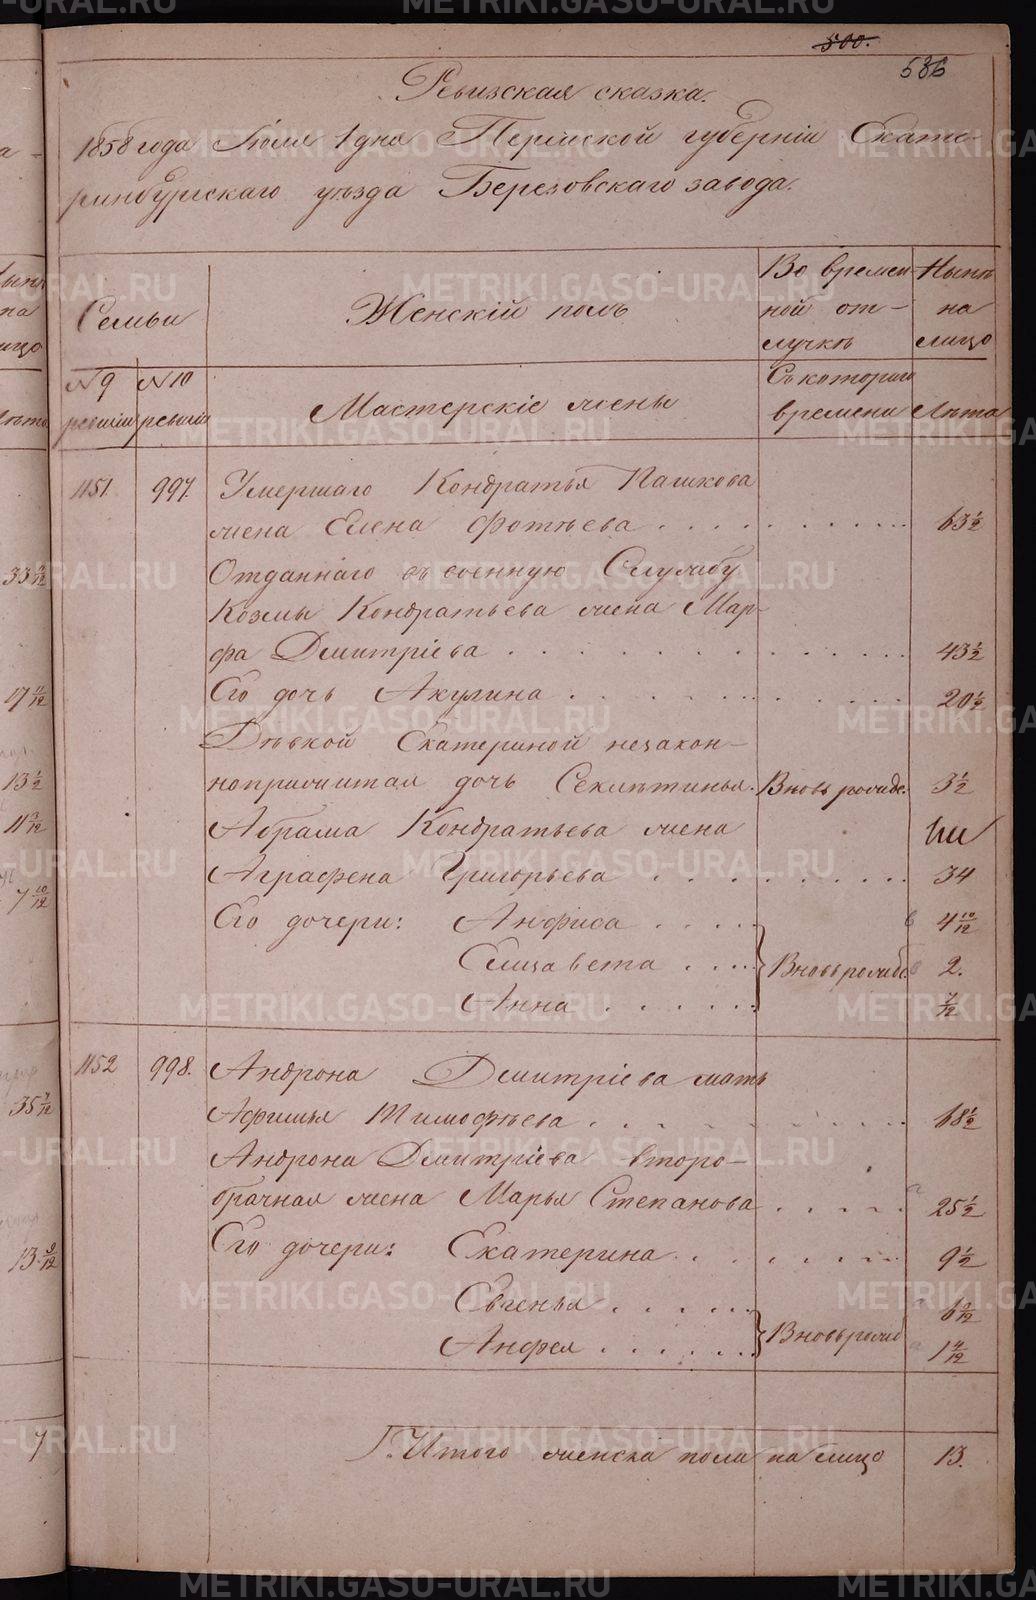 500.
586
Ревизская сказка.
1858 года Іюля 1 дня Пермской губерніи Екате-
ринбургскаго уѣзда Березовскаго завода.
Семьи
Женскій полъ
Во времен-
ной от-
лучкѣ
Нынѣ
на
лицо
N 9
ревизіи
N 10
ревизіи
Мастерскіе жены
Съ котораго
времени
Лѣта
1151. 997. Умершаго Кондратья Пашкова
жена Елена Фотѣева . . . . . . . . . . 63 1/2
Отданнаго въ военную Службу
Козмы Кондратьева жена Мар-
фа Дмитріева . . . . . . . . . . . . . 43 1/2
Его дочь Акулина . . . . . . . . . . 20 1/2
Дѣвкой Екатериной незакон-
ноприжитая дочь Секлѣтинья. Вновь рожде. 3 1/2
Абрама Кондратьева жена
Аграфена Григорьева . . . . . . . . . . 34
Его дочери: Анфиса . . . . 4 10/12
Елизавета . . . . Вновь рожде 2.
Анна . . . . . . 7/12
1152 998. Андрона Дмитріева мать
Афимья Тимофѣева . . . . . . . . . . 68 1/2
Андрона Дмитріева второ-
брачная жена Марья Степанова . . . . . 25 1/2
Его дочери: Екатерина . . . . . . . . 9 1/2
Евгенья . . . . . 6
Анфея . . . . . . Вновь рожд 1
Итого женска пола на лицо 13.
33
17 11/12
13 1/2
11
7 10/12
35
13
7
METRIKI.GASO-URAL.RU